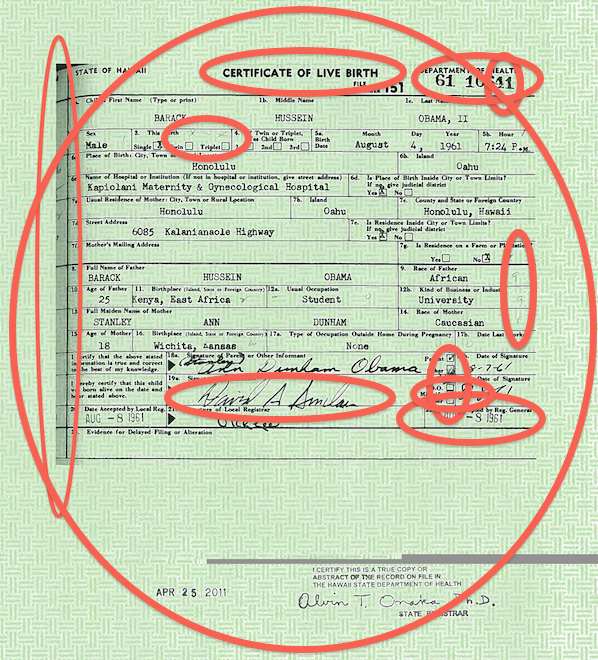 STATE OF HAWAII
CERTIFICATE OF LIVE BIRTH
DEPARTMENT OF HEALTH
FILE 151
61 10641
Child's First Name (Type or print) 1b. Middle Name 1c. Last
BARACK HUSSEIN OBAMA, II
Sex 3. This Birth 4. If Twin or Triplet, 5a. Month Day Year 5b. Hour
Was Child Born Birth Date
Male Single X Twin Triplet 1st 2nd 3rd August 4, 1961 7:24 P.M.
Place of Birth: City, Town 6b. Island
Honolulu Oahu
Name of Hospital or Institution (If not in hospital or institution, give street address) 6d. Is Place of Birth Inside City or Town Limits?
If no, give judicial district
Kapiolani Maternity & Gynecological Hospital Yes X No
Usual Residence of Mother: City, Town or Rural Location 7b. Island 7c. County and State or Foreign Country
Honolulu Oahu Honolulu, Hawaii
Street Address 7e. Is Residence Inside City or Town Limits?
If no, give judicial district
6085 Kalanianaole Highway Yes X No
Mother's Mailing Address 7g. Is Residence on a Farm or Plantation
Yes No X
Full Name of Father 9. Race of Father
BARACK HUSSEIN OBAMA African
Age of Father 11. Birthplace (Island, State or Foreign Country) 12a. Usual Occupation 12b. Kind of Business or
25 Kenya, East Africa Student University
Full Maiden Name of Mother 14. Race of Mother
STANLEY ANN DUNHAM Caucasian
Age of Mother 16. Birthplace (Island, State or Foreign Country) 17a. Type of Occupation Outside Home During Pregnancy 17b. Date Last Worked
18 Wichita, Kansas None
I certify that the above stated 18a. Signature of Parent or Other Informant Parent Date of Signature
information is true and correct
to the best of my knowledge. (Stanley) Ann Dunham Obama 8-7-61
I hereby certify that this child 19a.
was born alive on the date and M.D.
hour stated above. David A Sinclair
Date Accepted by Local Reg. Signature of Local Registrar by Reg. General
AUG -8 1961 -8 1961
Evidence for Delayed Filing or Alteration
APR 25 2011
I CERTIFY THIS IS A TRUE COPY OR
ABSTRACT OF THE RECORD ON FILE IN
THE HAWAII STATE DEPARTMENT OF HEALTH
Alvin T. Onaka Ph.D.
STATE REGISTRAR